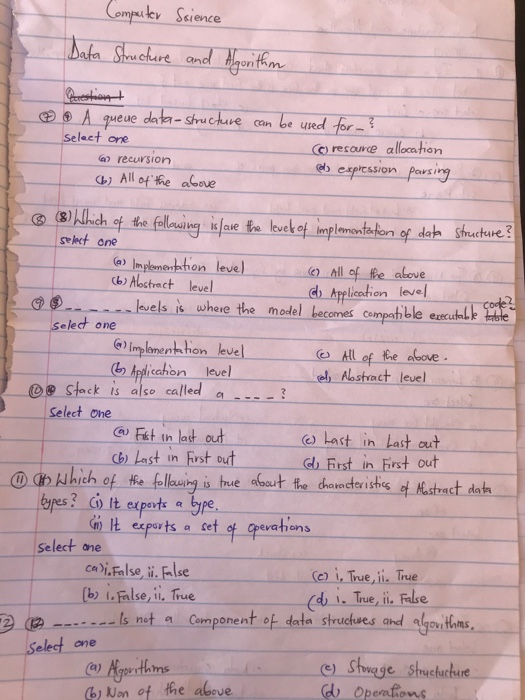 Computer Science
Data Structure and Algorithm
Question 1
⑦ A queue data-structure can be used for - ?
Select one
(a) recursion (c) resource allocation
(b) All of the above (d) expression parsing
⑧ (8) Which of the following is/are the levels of implementation of data structure?
select one
(a) Implementation level (c) All of the above
(b) Abstract level (d) Application level
⑨ _ _ _ _ _ _ _ levels is where the model becomes compatible executable table code?
Select one
(a) implementation level (c) All of the above.
(b) Application level (d) Abstract level
⑩ Stack is also called a _ _ _ _ ?
Select one
(a) First in last out (c) Last in Last out
(b) Last in First out (d) First in First out
⑪ Which of the following is true about the characteristics of Abstract data
types? (i) It exports a type.
(ii) It exports a set of operations
Select one
(a) i. False, ii. False (c) i. True, ii. True
(b) i. False, ii. True (d) i. True, ii. False
12 (12) _ _ _ _ _ _ _ Is not a component of data structures and algorithms.
Select one
(a) Algorithms (c) Storage Structucture
(b) Non of the above (d) Operations